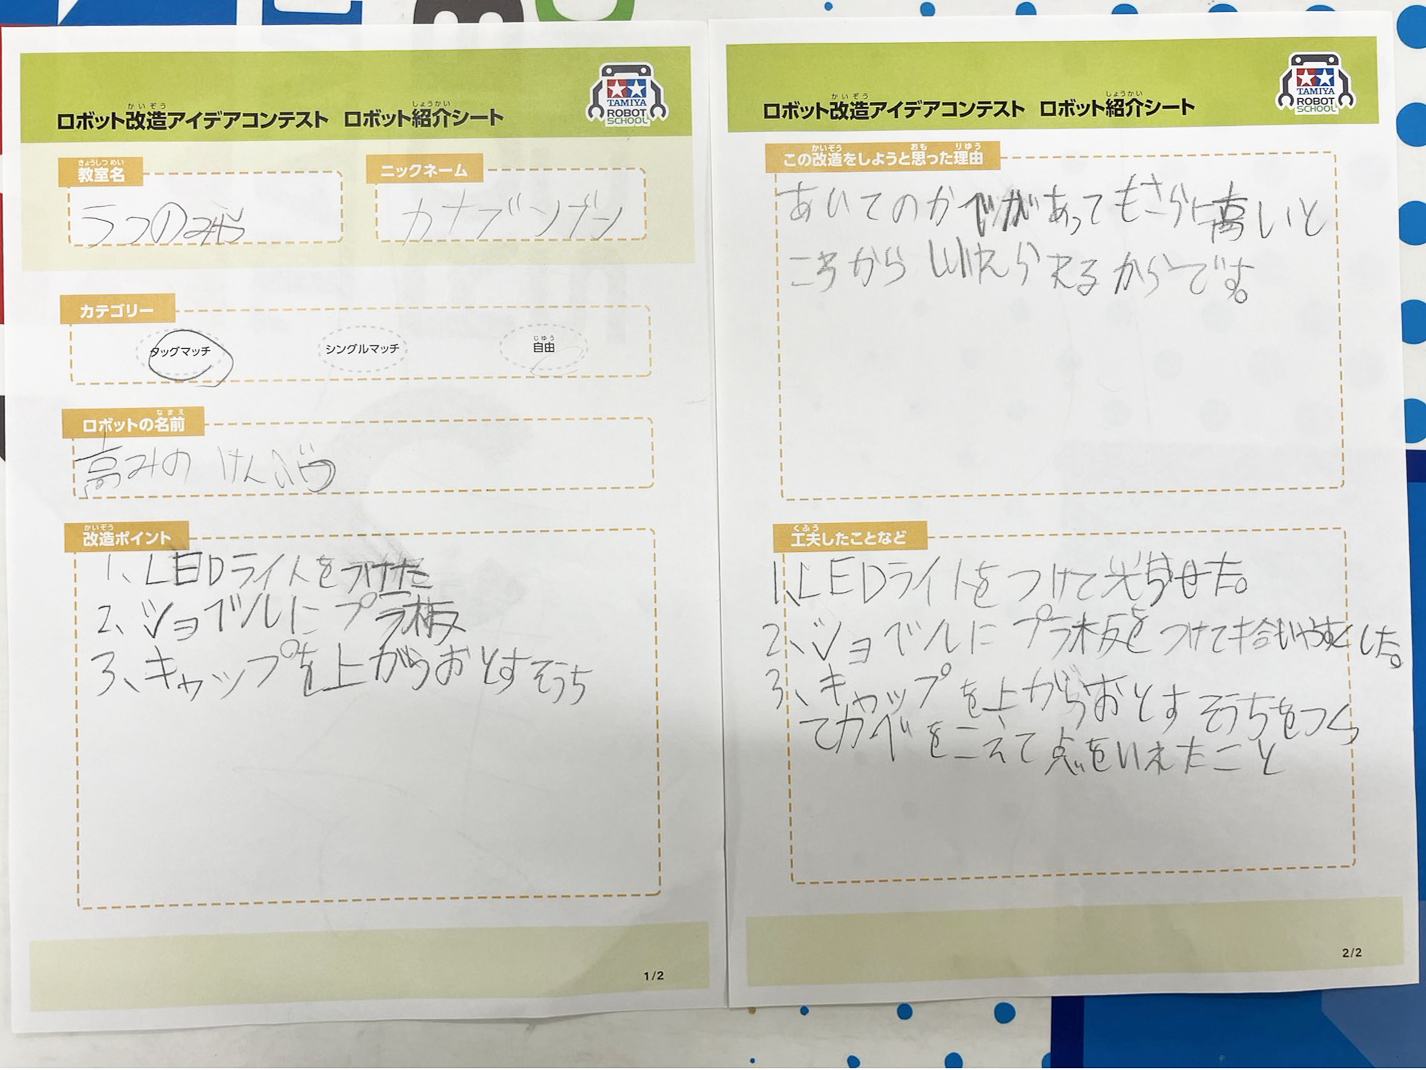 かいぞう
しょうかい
ロボット改造アイデアコンテスト ロボット紹介シート
TAMIYA
ROBOT
SCHOOL
きょうしつめい
教室名
うつのみや
ニックネーム
カナブンブン
カテゴリー
タッグマッチ
シングルマッチ
じゆう
自由
なまえ
ロボットの名前
高みの けんぶつ
かいぞう
改造ポイント
1、LEDライトをつけた
2、ショベルにプラ板
3、キャップを上からおとすそうち
1/2
かいぞう
しょうかい
ロボット改造アイデアコンテスト ロボット紹介シート
TAMIYA
ROBOT
SCHOOL
かいぞう おも りゆう
この改造をしようと思った理由
あいてのかべがあってもさらに高いと
ころから いれられるからです。
くふう
工夫したことなど
1、LEDライトをつけて光らせた。
2、ショベルにプラ板をつけて拾いやすくした。
3、キャップを上からおとすそうちをつくっ
てカベをこえて点をいれたこと
2/2